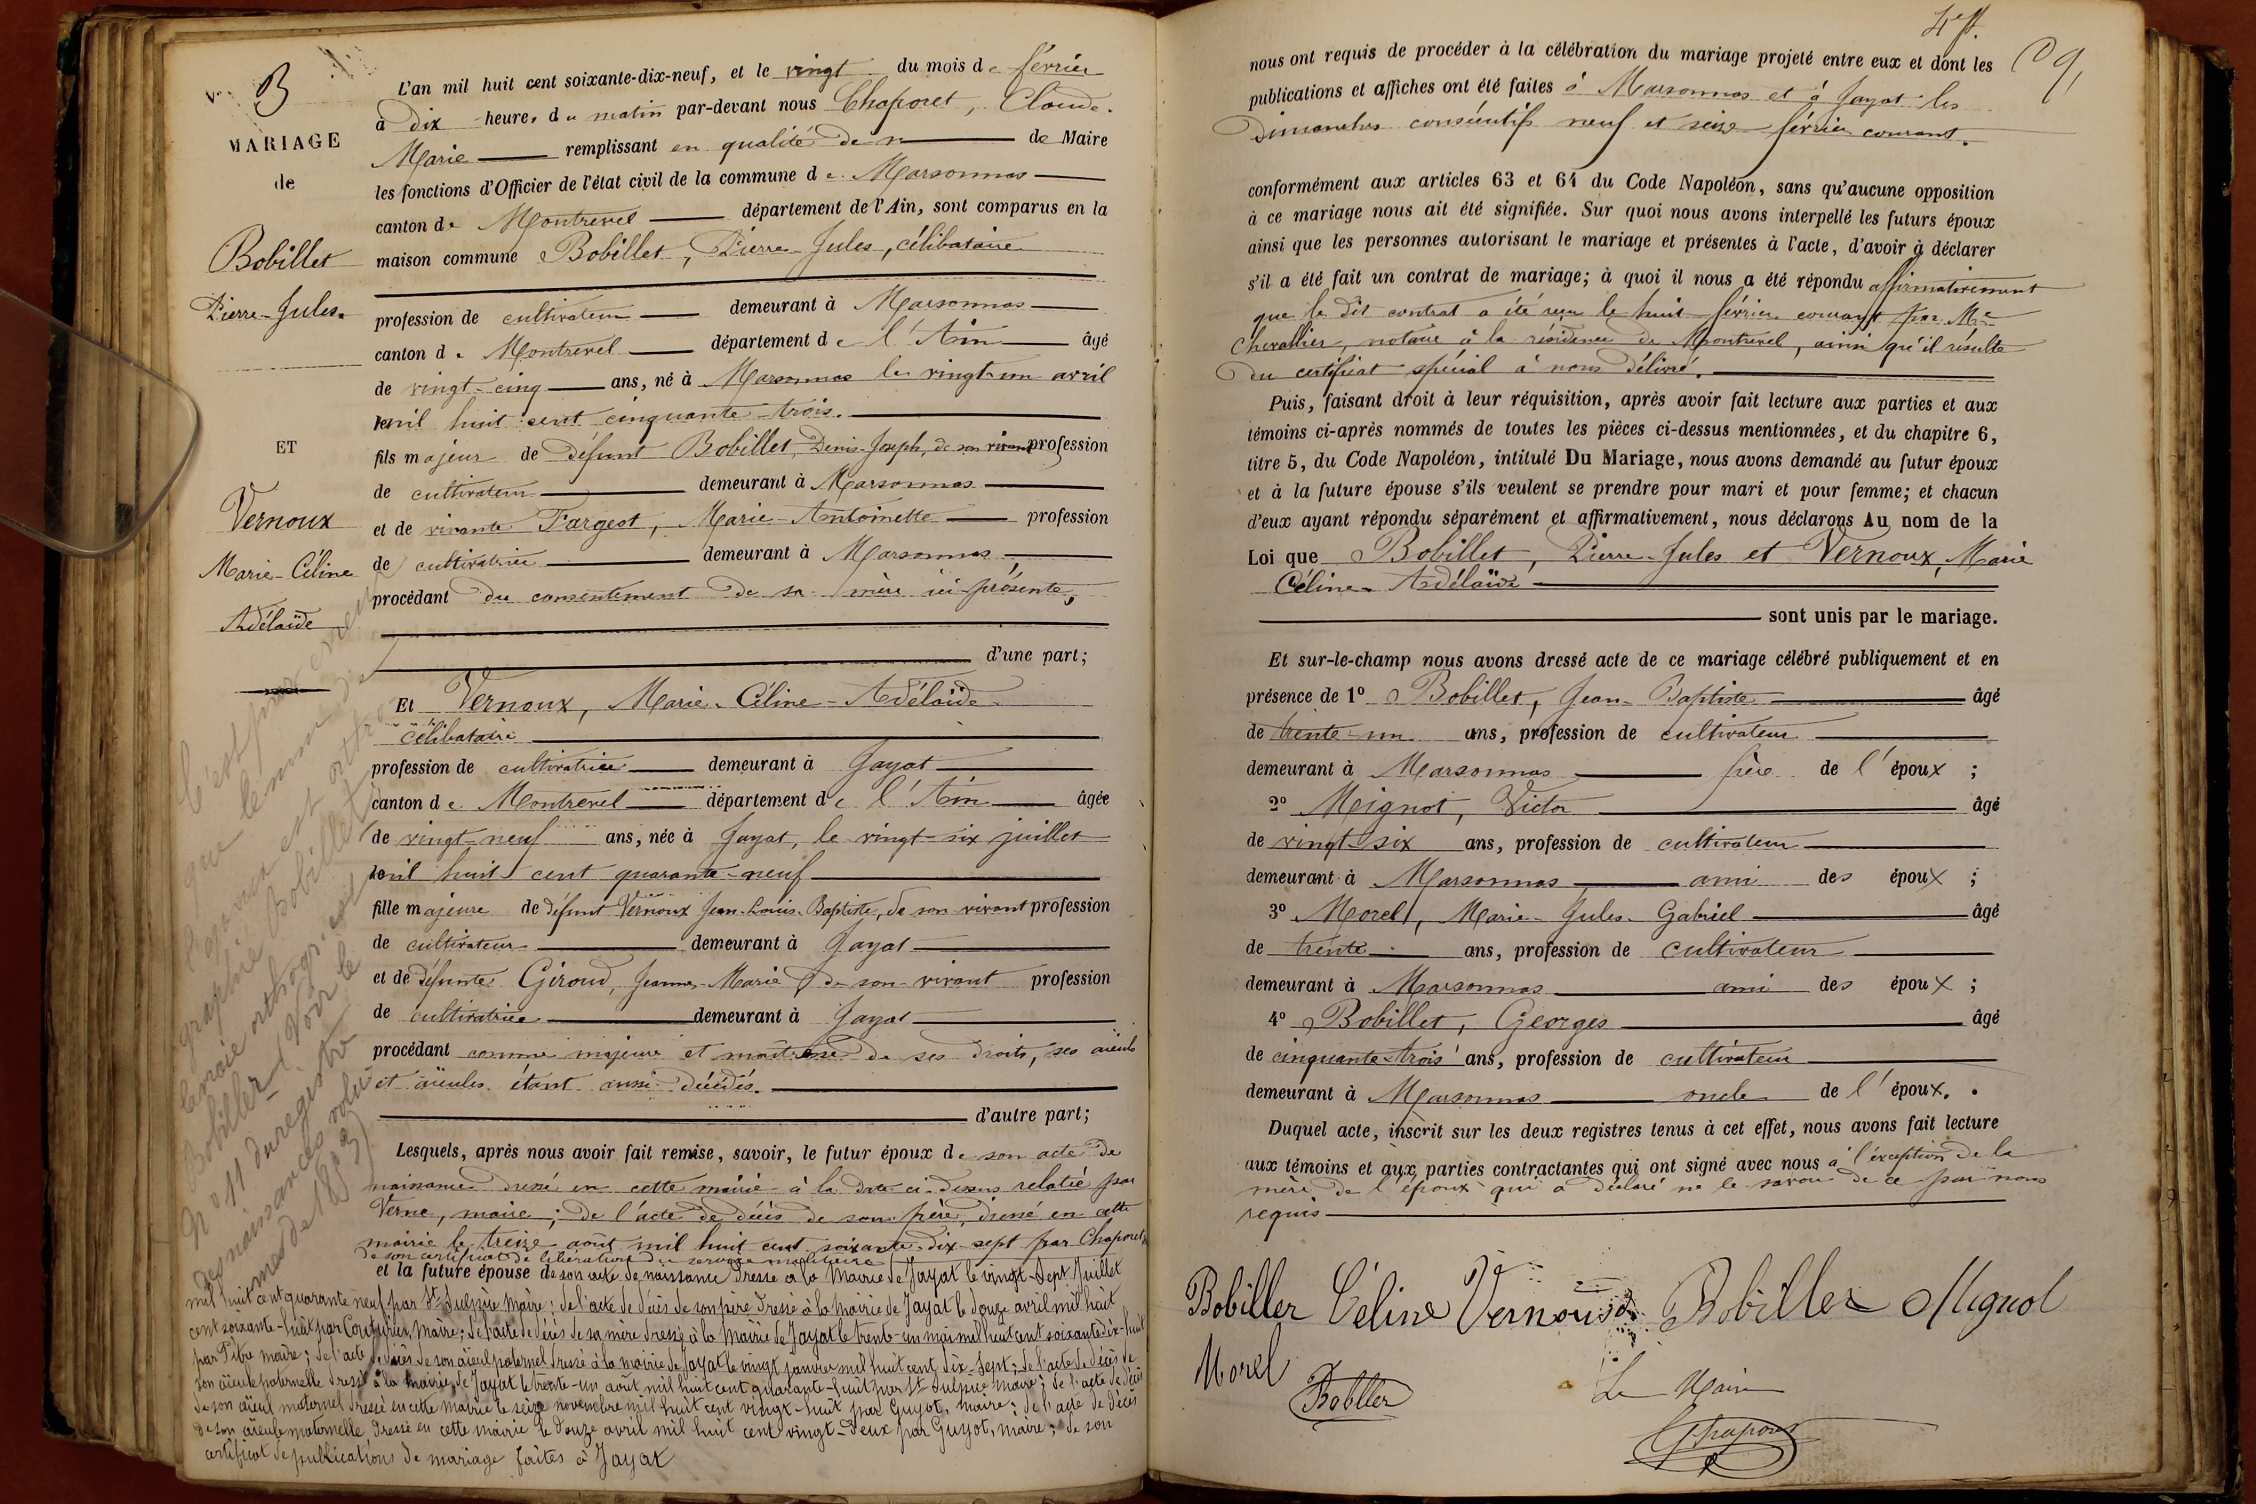 3
MARIAGE
de
Bobillet
Pierre-Jules.
ET
Vernoux
Marie-Céline
Adélaïde
L'an mil huit cent soixante-dix-neuf, et le vingt du mois de février
à dix heures du matin par-devant nous Chaporet, Claude-
Marie remplissant en qualité de de Maire
les fonctions d'Officier de l'état civil de la commune de Marsonnas
canton de Montrevel département de l'Ain, sont comparus en la
maison commune Bobillet, Pierre-Jules, célibataire
profession de cultivateur demeurant à Marsonnas
canton de Montrevel département de l'Ain âgé
de vingt-cinq ans, né à Marsonnas le vingt-un avril
mil huit cent cinquante-trois.
fils majeur de défunt Bobillet, Denis-Joseph, de son vivant profession
de cultivateur demeurant à Marsonnas
et de vivante Fargeot, Marie-Antoinette profession
de cultivatrice demeurant à Marsonnas
procédant du consentement de sa mère ici présente,
d'une part;
Et Vernoux, Marie-Céline-Adélaïde
célibataire
profession de cultivatrice demeurant à Jayat
canton de Montrevel département de l'Ain âgée
de vingt-neuf ans, née à Jayat, le vingt-six juillet
mil huit cent quarante-neuf
fille majeure de défunt Vernoux Jean-Louis-Baptiste, de son vivant profession
de cultivateur demeurant à Jayat
et de défunte Giroud, Jeanne-Marie de son vivant profession
de cultivatrice demeurant à Jayat
procédant comme majeure et maîtresse de ses droits, ses aïeuls
et aïeules étant aussi décédés.
d'autre part;
Lesquels, après nous avoir fait remise, savoir, le futur époux de son acte de
naissance dressé en cette mairie à la date ci-dessus relatée par
Verne, maire; de l'acte de décès de son père, dressé en cette
mairie le treize août mil huit cent soixante-dix-sept par Chaporet,
de son certificat de libération du service militaire
et la future épouse de son acte de naissance dressé à la Mairie de Jayat le vingt-sept Juillet
mil huit cent quarante neuf par St Sulpice Maire; de l'acte de décès de son père dressé à la Mairie de Jayat le douze avril mil huit
cent soixante-huit par Couturier, Maire; de l'acte de décès de sa mère dressé à la Mairie de Jayat le trente-un mai mil huit cent soixante dix-huit
par Pitre maire; de l'acte de décès de son aïeul paternel dressé à la mairie de Jayat le vingt janvier mil huit cent dix-sept; de l'acte de décès de
son aïeule paternelle dressé à la mairie de Jayat le trente-un août mil huit cent quarante-huit par St Sulpice maire; de l'acte de décès
de son aïeul maternel dressé en cette mairie le seize novembre mil huit cent vingt-huit par Guyot, maire; de l'acte de décès
de son aïeule maternelle dressé en cette mairie le douze avril mil huit cent vingt-deux par Guyot, maire; de son
certificat de publications de mariage faites à Jayat
C'est par erreur
que le nom de
l'époux est ortho
graphié Bobillet
la vraie orthogr. est
Bobiller. Voir le
N° 11 du registre
des naissances
de 1853
nous ont requis de procéder à la célébration du mariage projeté entre eux et dont les
publications et affiches ont été faites à Marsonnas et à Jayat les
dimanches consécutifs neuf et seize février courant.
conformément aux articles 63 et 64 du Code Napoléon, sans qu'aucune opposition
à ce mariage nous ait été signifiée. Sur quoi nous avons interpellé les futurs époux
ainsi que les personnes autorisant le mariage et présentes à l'acte, d'avoir à déclarer
s'il a été fait un contrat de mariage; à quoi il nous a été répondu affirmativement
que le dit contrat a été reçu le huit février courant par Me
Chevallier, notaire à la résidence de Montrevel, ainsi qu'il résulte
du certificat spécial à nous délivré.
Puis, faisant droit à leur réquisition, après avoir fait lecture aux parties et aux
témoins ci-après nommés de toutes les pièces ci-dessus mentionnées, et du chapitre 6,
titre 5, du Code Napoléon, intitulé Du Mariage, nous avons demandé au futur époux
et à la future épouse s'ils veulent se prendre pour mari et pour femme; et chacun
d'eux ayant répondu séparément et affirmativement, nous déclarons Au nom de la
Loi que Bobillet, Pierre-Jules et Vernoux, Marie
Céline-Adélaïde
sont unis par le mariage.
Et sur-le-champ nous avons dressé acte de ce mariage célébré publiquement et en
présence de 1° Bobillet, Jean-Baptiste âgé
de trente-un ans, profession de cultivateur
demeurant à Marsonnas frère de l'époux ;
2° Mignot, Victor âgé
de vingt-six ans, profession de cultivateur
demeurant à Marsonnas ami des époux ;
3° Morel, Marie-Jules-Gabriel âgé
de trente ans, profession de cultivateur
demeurant à Marsonnas ami des époux ;
4° Bobillet, Georges âgé
de cinquante-trois ans, profession de cultivateur
demeurant à Marsonnas oncle de l'époux.
Duquel acte, inscrit sur les deux registres tenus à cet effet, nous avons fait lecture
aux témoins et aux parties contractantes qui ont signé avec nous à l'exception de la
mère de l'époux qui a déclaré ne le savoir de ce par nous
requis
Bobiller Céline Vernoux Bobiller Mignot
Morel
Bobller
Le Maire
Chaporet